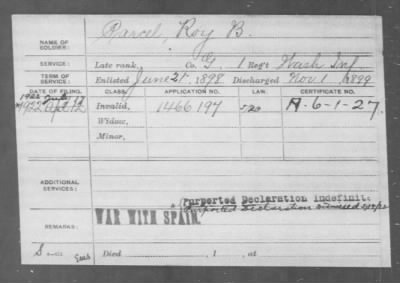 NAME OF SOLDIER: Parcel, Roy B.
SERVICE: Late rank, Co. G. 1 Reg't Wash Inf.
TERM OF SERVICE: Enlisted June 21 1898 Discharged Nov 1, 1899
DATE OF FILING. CLASS. APPLICATION NO. LAW. CERTIFICATE NO.
1922 July 17
1922 Apl 12 Invalid, 1466197 A-6-1-27.
Widow,
Minor,
ADDITIONAL SERVICES:
Purported Declaration Indefinite
Purported Declaration
WAR WITH SPAIN.
REMARKS:
Died , 1 , at